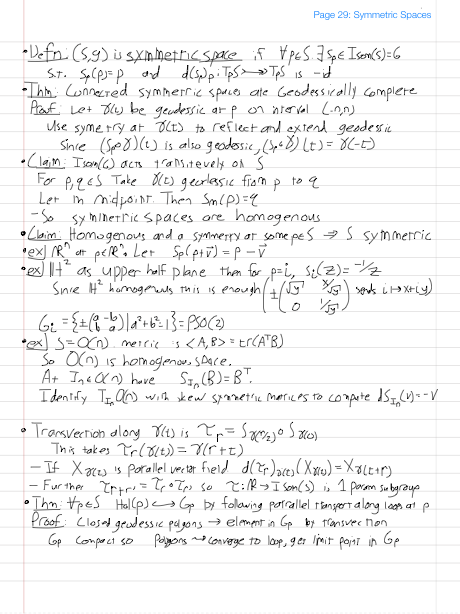 Page 29: Symmetric Spaces
• Defn: (S,g) is symmetric space if ∀p∈S ∃ Sp∈Isom(S)=G
s.t. Sp(p)=p and d(Sp)p: TpS → TpS is -id
• Thm: Connected symmetric spaces are Geodessically complete
Proof: Let γ(t) be geodessic at p on interval (-η,η)
Use symetry at γ(t) to reflect and extend geodessic
Since (Sp∘γ)(t) is also geodessic, (Sp∘γ)(t) = γ(-t)
• Claim: Isom(S) acts transitevely on S
For p,q∈S Take γ(t) geodessic from p to q
Let m midpoint. Then Sm(p)=q
- So symmetric spaces are homogenous
• Claim: Homogenous and a symmetry at some p∈S ⇒ S symmetric
• ex) ℝⁿ at p∈ℝⁿ. Let Sp(p+v⃗) = p - v⃗
• ex) ℍ² as upper half plane then for p=i, Si(z) = -1/z
Since ℍ² homogenous this is enough ±(√y x/√y
0 1/√y) sends i↦x+iy
Gi = {±(a -b
b a) | a²+b²=1} = PSO(2)
• ex) S=O(n) metric is <A,B> = tr(AᵀB)
So O(n) is homogenous space.
At In∈O(n) have S_In(B)=Bᵀ.
Identify T_In O(n) with skew symmetric matrices to compute dS_In(v)=-v
• Transvection along γ(t) is τr = Sγ(r/2) ∘ Sγ(0)
This takes τr(γ(t)) = γ(r+t)
- If Xγ(t) is parallel vector field d(τr)γ(t)(Xγ(t)) = Xγ(t+r)
- Further τr+r' = τr∘τr' so τ: ℝ→Isom(S) is 1 param subgroup
• Thm: ∀p∈S Hol(p) ↪ Gp by following parallel transport along loop at p
Proof: Closed geodessic polygons → element in Gp by transvection
Gp compact so polygons → converge to loop, get limit point in Gp